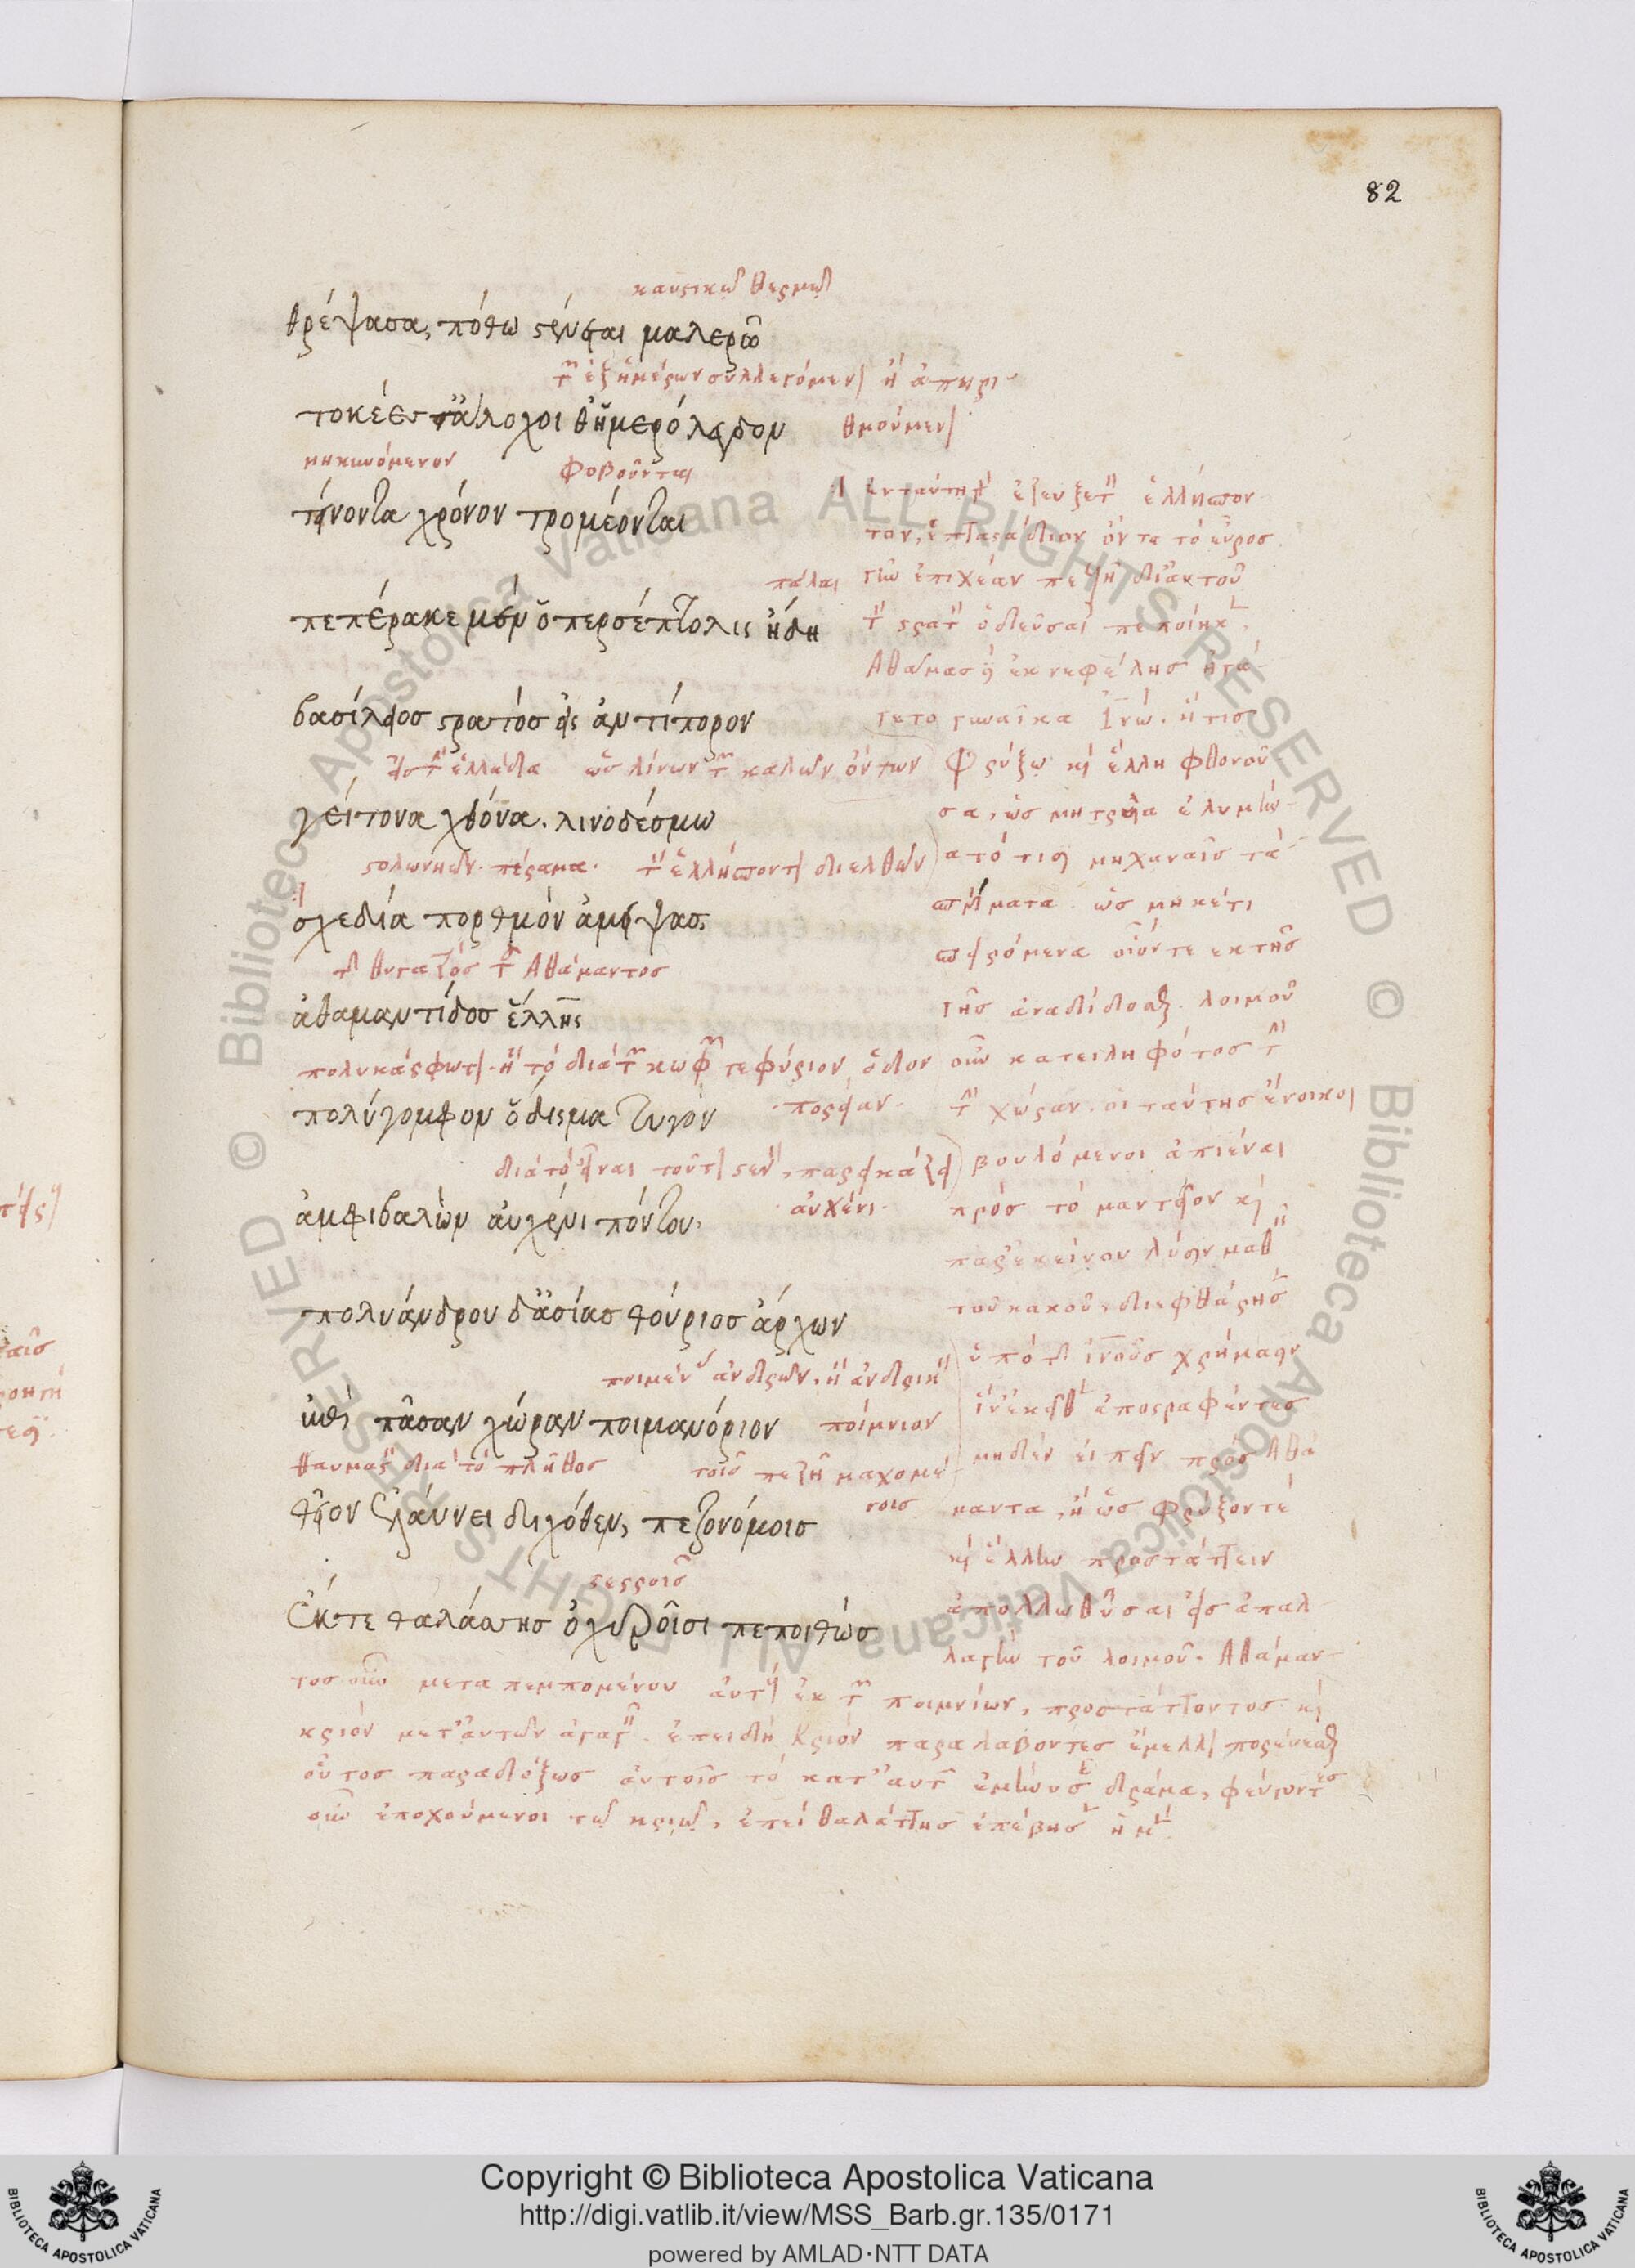 82
καυστικῷ θερμῷ
θρέψασα, πόθω στένεται μαλερῶ
τῶν ἐξ ἡμερῶν συλλεγόμενον ἢ ἀπηρι
τοκέες τἄλοχοι θ' ἡμερόλεγδον
θμούμενον
μηκυνόμενον φοβοῦνται
τείνοντα χρόνον τρομέονται
πάλαι
πεπέρακε μὲν ὁ περσέπτολις ἤδη
βασίλειος στρατὸς εἰς ἀντίπορον
εἰς τὴν ἑλλάδα ὡς λίνων τῶν καλῶν ὄντων
γείτονα χθόνα. λινοδέσμω
πέραμα. τὸν ἑλλήσποντον διελθών
σχεδία πορθμὸν ἀμείψας
τῆς θυγατρὸς τοῦ Ἀθάμαντος
ἀθαμαντίδος ἕλλης
πολυκάρφωτον. ἢ τὸ διὰ τῶν γεφύριον, ὅδον
πολύγομφον ὅδισμα ζυγὸν
πορείαν
διὰ τὸ εἶναι τοῦτον στενόν, παρεικάζει
ἀμφιβαλὼν αὐχένι πόντου.
αὐχένι
πολυάνδρου δ' ἀσίας θούριος ἄρχων
ποιμένα ἀνδρῶν. ἢ ἀνδρικὸν
ἐπὶ πᾶσαν χώραν ποιμανόριον
ποίμνιον
θαυμαστὸν διὰ τὸ πλῆθος τοῖς πεζῇ μαχομέ
νοις
θεῖον ἐλαύνει διχόθεν, πεζονόμοις
στερροῖς
ἔκ τε θαλάσσης ὀχυροῖσι πεποιθὼς
ἐνταύτην ἔζευξε τὸν ἑλλήσπον
τον, ἑπταστάδιον ὄντα τὸ εὖρος
πεζῇ δι' αὐτοῦ
τὸν στρατὸν ὁδεῦσαι πεποίηκε.
Ἀθάμας ὁ ἐκ νεφέλης ἠγά
γετο γυναῖκα Ἰνώ. ἥτις
Φρύξω καὶ ἕλλη φθονοῦ
σα, ὡς μητρυιὰ ἐλυμήν
ατό τισι μηχαναῖς τὰ
σπέρματα. ὡς μηκέτι
σπειρόμενα οἷόν τε ἐκ τῆς
γῆς ἀναδίδοσθαι. λοιμοῦ
οὖν κατειληφότος
τὴν χώραν. οἱ ταύτης ἔνοικοι
βουλόμενοι ἀπιέναι
πρὸς τὸ μαντεῖον καὶ
παρ' ἐκείνου λύσιν μαθεῖν
τοῦ κακοῦ, διεφθάρησαν
ὑπὸ τῆς ἰνοῦς χρήμασιν
ἵν' ἐκεῖθεν ὑποστραφέντες
μηδὲν εἰπεῖν πρὸς Ἀθά
μαντα, ἢ ὡς Φρύξον τέ
καὶ ἕλλην προστάττειν
ἀπόλλω θῦσαι εἰς ἀπαλ
λαγὴν τοῦ λοιμοῦ. Ἀθάμαν
τος οὖν μεταπεμπομένου αὐτοὺς ἐκ τῶν ποιμνίων, προστάττοντος καὶ
κριὸν μετ' αὐτῶν ἀγαγεῖν. ἐπειδὴ κριὸν παραλαβόντες ἔμελλον πορεύεσθαι
οὗτος παραδόξως αὐτοῖς τὸ κατ' αὐτῶν ἐμήνυσε δρᾶμα, φεύγοντες
οὖν ἐποχούμενοι τῷ κριῷ, ἐπεὶ θαλάττης ἐπέβησαν ἡ μὲν
Copyright © Biblioteca Apostolica Vaticana
http://digi.vatlib.it/view/MSS_Barb.gr.135/0171
powered by AMLAD·NTT DATA